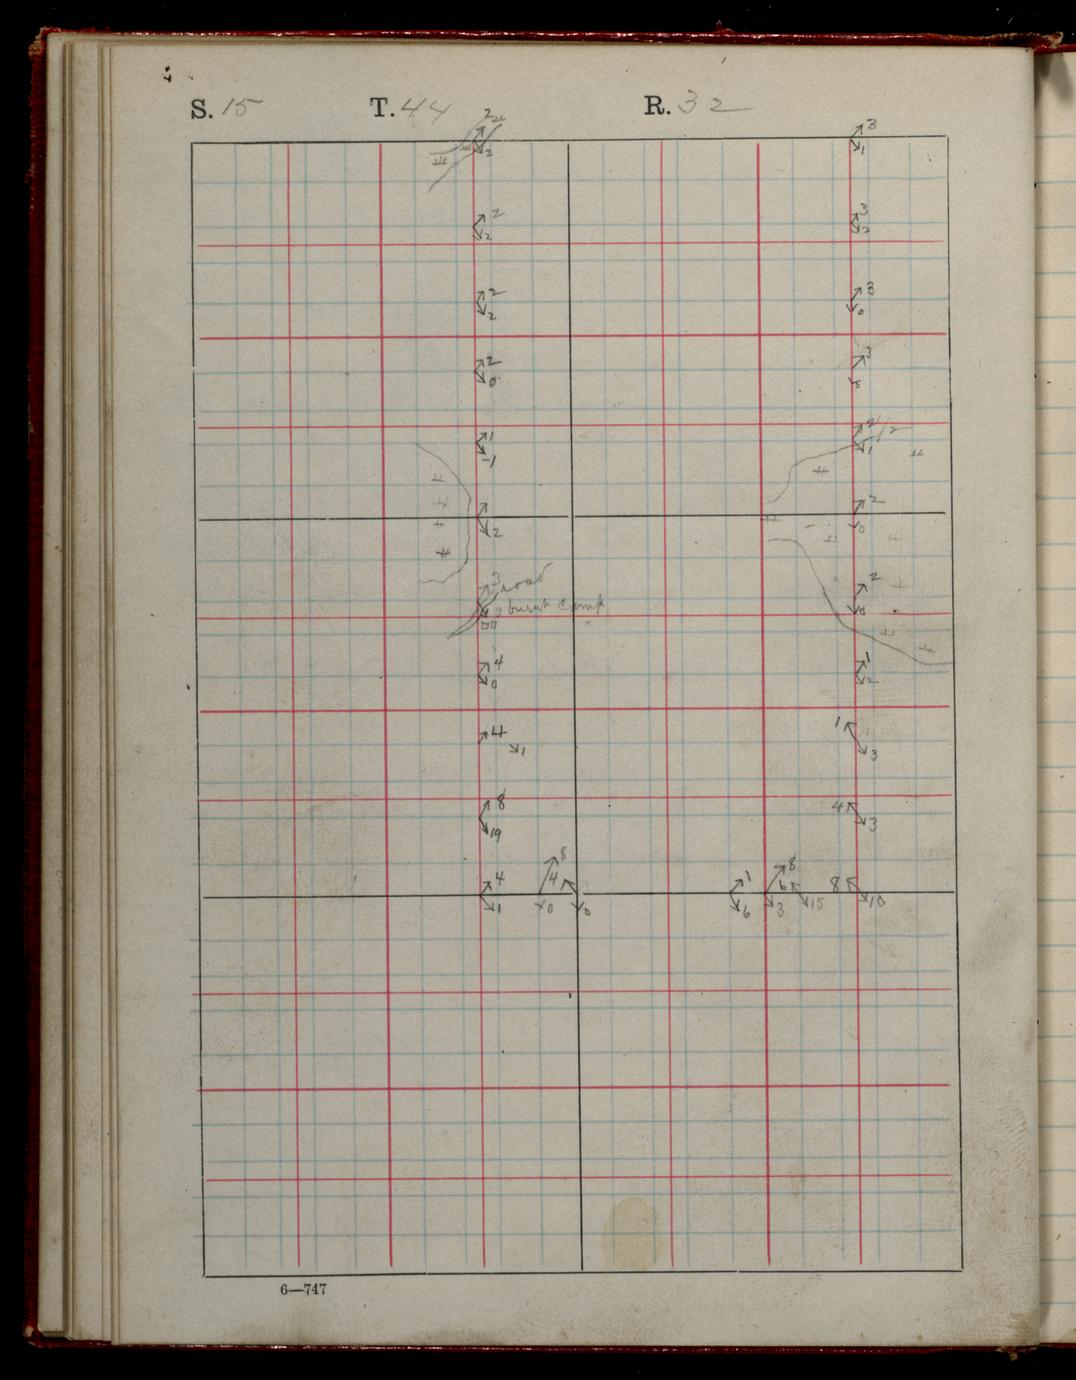 S. 15 T. 44 R. 32
2 3
2 1
2 3
2 2
2 3
2 0
2 3
0
1 2 1/2
-1 1
2
2 0
3 road 2
burnt Camp 0
4 1
0 2
4 1
1 3
8 4
19 3
4 8 4 1 8 6 8
1 0 0 6 3 15 10
6—747